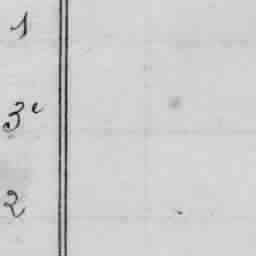 1
3e
2